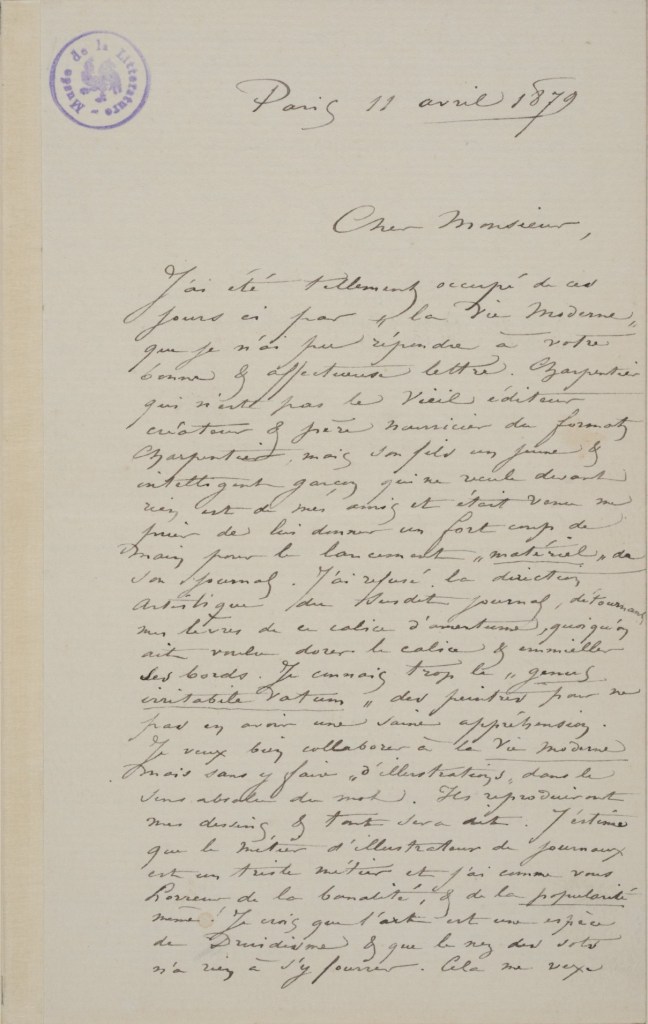 Musée de la Littérature
Paris 11 avril 1879
Cher Monsieur,
J'ai été tellement occupé de ces
jours ci par „la Vie Moderne„
que je n'ai pu répondre à votre
bonne & affectueuse lettre. Charpentier
qui n'est pas le Vieil éditeur
créateur & père nourricier du format
Charpentier, mais son fils un jeune &
intelligent garçon qui ne recule devant
rien est de mes amis et était venu me
prier de lui donner un fort coup de
main pour le lancement „matériel„ de
son journal. J'ai refusé la direction
artistique du susdit journal, détournant
mes lèvres de ce calice d'amertume, quoiqu'on
ait voulu dorer le calice & emmieller
ses bords. Je connais trop le „genus
irritabile vatum„ des peintres pour ne
pas en avoir une saine appréhension.
Je veux bien collaborer à la Vie Moderne
mais sans y faire „d'illustrations„ dans le
sens absolu du mot. Ils reproduiront
mes dessins & tout sera dit. J'estime
que le métier d'illustrateur de journaux
est un triste métier et j'ai comme vous
horreur de la banalité, & de la popularité
même! Je crois que l'art est une espèce
de Druidisme & que le nez des sots
n'a rien à s'y fourrer. Cela me vexe